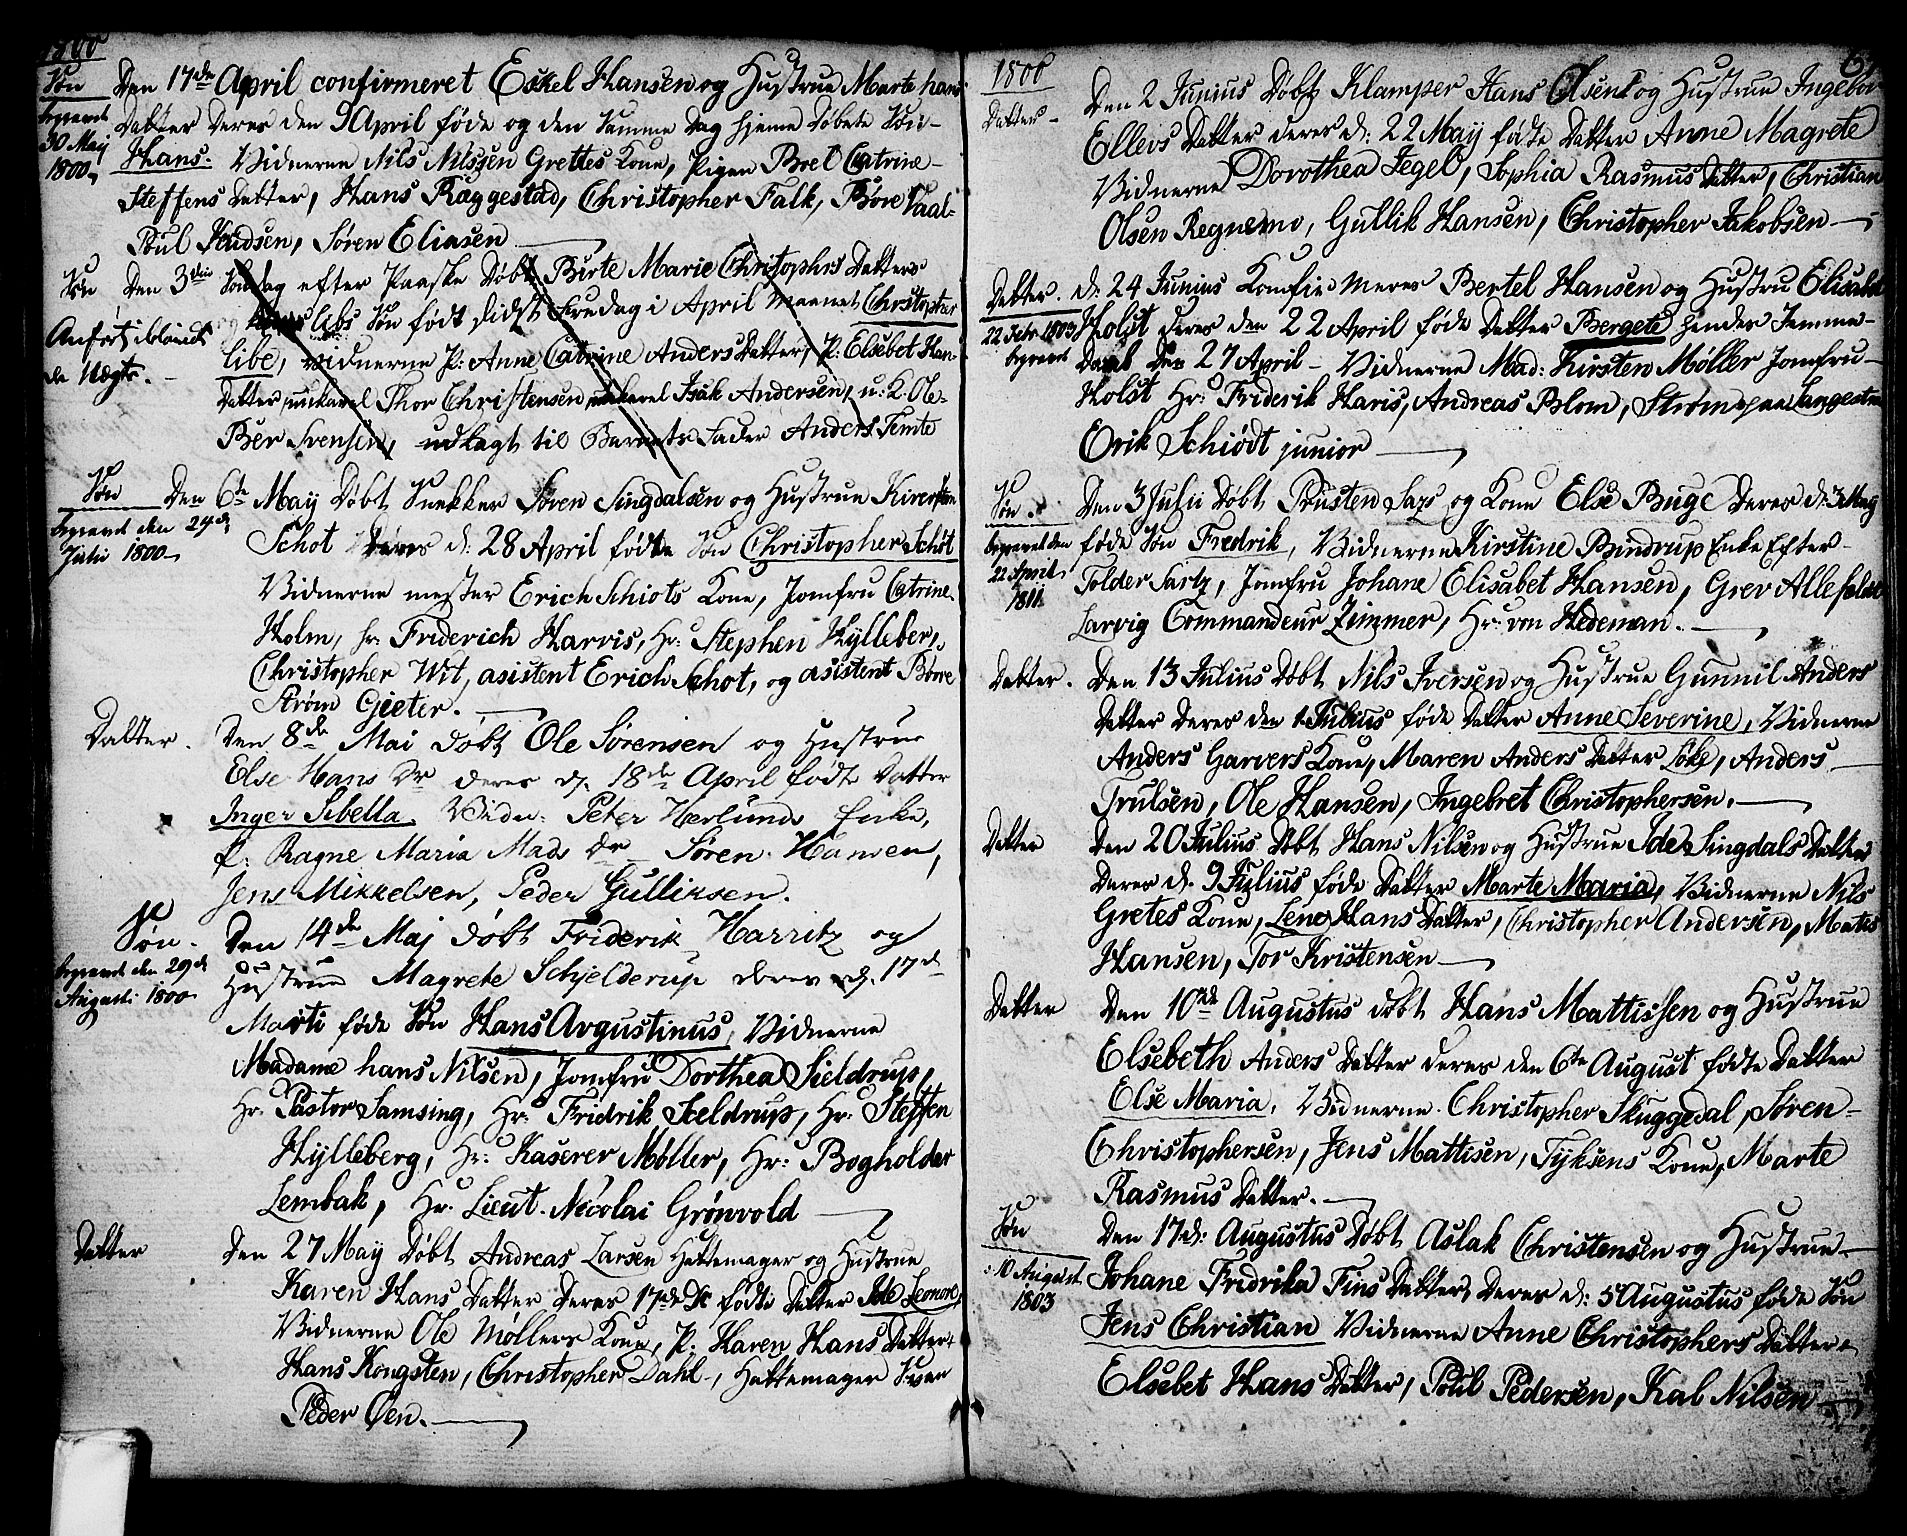 1800
Søn
Den 17de April confirmeret Eskel Hansen og Hustrue Marte hans
begravet
30 May
1800
Datter Deres den 9 April føde og den samme Dag hjeme døbete Søn
Hans. Vidnerne Nils Nilssen Grettes Kone, Pigen Boel Catrine
Steffens Datter, Hans Raggestad, Christopher Falk, Børe Vaal-
Poul Knudsen, Søren Eliasen
Søn Den 3die Søndag efter Paaske Døbt Birte Marie Christophers Datters
Søn født sidst Fredag i April Maanet Christopher
Anført iblandt
de Uægte.
Libe, vidnerne P: Anne Catrine Anders Datter, P: Elsebet Han-
Datter, unkarel Thor Christensen, unkarel Isak Andersen, u: K. Ole
Ber Svensen, udlagt til Barnets Fader Anders Temte
Søn Den 6te May Døbt Snekker Søren Singdalsen og Hustrue Kirersten
begravet den 29de
Julii 1800
Schot Deres d: 28 April fødte Søn Christopher Schot
Vidnerne mester Erich Schiots Kone, Jomfru Catrine
Holm, hr: Friderich Harvis, Hr: Stephen Hylleber,
Christopher Wit, asistent Erich Schot, og asistent Børre
Strøm Gieter.
Datter. Den 8de Mai døbt Ole Sørensen og Hustrue
Else Hans Dr deres d. 18de April fødte Datter
Inger Sibella. Vidn: Peter Herlunds Enke,
P: Ragne Maria Mads Dr Søren Hansen,
Jens Mikkelsen, Peder Gulliksen.
Søn. Den 14de Maj døbt Friderik Harritz og
begravet den 29de
August: 1800
Hustrue Magrete Schjelderup deres d. 17de
Marti føde Søn Hans Avgustinus, Vidnerne
Madame hans Nilsen, Jomfru Dorthea Sieldrup,
Hr: Pastor Samsing, Hr: Fridrik Sceldrup, Hr: Steffen
Hylleberg, Hr: Kaserer Møller, Hr: Bogholder
Lembak, Hr. Lieut. Nicolai Grønvold
Datter Den 27 May Døbt Andreas Larsen Hattemager og Hustrue
Karen Hans Datter Deres 17de Dc fødte Datter Ide Leonore,
Vidnerne Ole Møllers Kone, P: Karen Hans Datter
Hans Kongsten, Christopher Dahl, Hattemager Sven
Peder Øen.
1800
Datter
Den 2 Junius Døbt Klamper Hans Olsen og Hustrue Ingebor
Ellevs Datter deres d: 22 May fødte Datter Anne Magrete
Vidnerne Dorothea Jegel, Sophia Rasmus Datter, Christian
Olsen Regnemo, Gullik Hansen, Christopher Jakobsen
Datter. d: 24 Junius Komfirmeres Bertel Hansen og Hustru Elisabet
22 Febr 1803
begravet
Holst Deres den 22 April føde Datter Bergete hendes Jemme-
Daab Den 27 April Vidnerne Mad: Kirsten Møller Jomfru
Holst Hr: Friderik Haris, Andreas Blom, Strøm paa Langestr
Erik Schiødt junior
Søn Den 3 Julii Døbt Trusten Sazs og Kone Else Buge Deres d: 3 May
begravet den
22 April
1811
føde Søn Fredrik, Vidnerne Kirstine Bindrup Enke Efter
Tolder Sartz, Jomfru Johane Elisabet Hansen, Grev Allefeldt
Larvig Commandeur Zimmer, Hr: von Hedeman.
Datter. Den 13 Julius Døbt Nils Iversen og Hustrue Gunnil Anders
Datter Deres den 1 Julius føde Datter Anne Severine, Vidnerne
Anders Garvers Kone, Maren Anders Datter Løke, Anders
Trulsen, Ole Hansen, Ingebret Christophersen.
Datter Den 20 Julius Døbt Hans Nilsen og Hustrue Ide Singdals Datter
Deres d. 9 Julius føde Datter Marte Maria, Vidnerne Nils
Gretes Kone, Lene Hans Datter, Christopher Andersen, Matis
Hansen, Tor Kristensen
Datter Den 10de Augustus døbt Hans Mattissen og Hustrue
Elsebeth Anders Datter deres den 6te August fødte Datter
Else Maria. Vidnerne Christopher Skuggedal, Søren
Christophersen, Jens Mattisen, Tyksens Kone, Marte
Rasmus Datter.
Søn
Den 17d: Augustus Døbt Aslak Christensen og Hustrue
10 August
1803
Johane Fridrika Fins Datter, Deres d: 5 Augustus føde Søn
Jens Christian Vidnerne Anne Christophers Datter
Elsebet Hans Datter, Poul Pedersen, Kal Nilsen